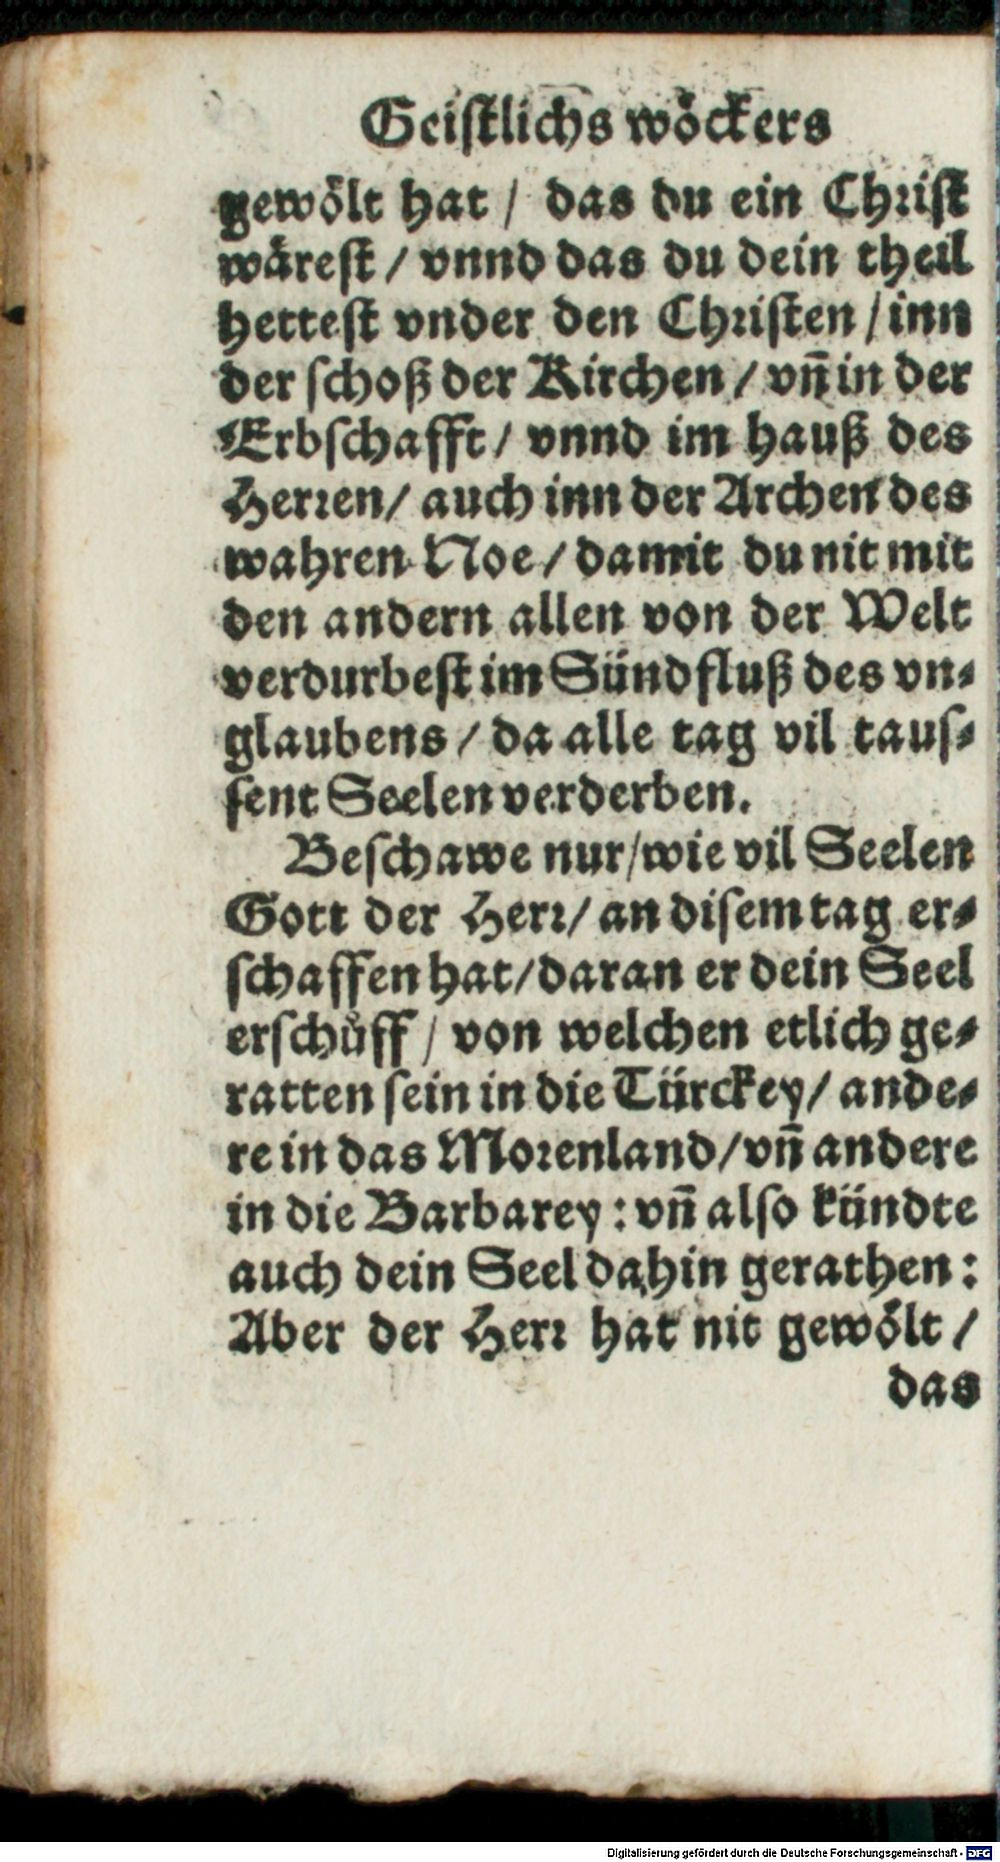 Geistlichs wöckers
gewölt hat / das du ein Christ
wärest / vnnd das du dein theil
hettest vnder den Christen / inn
der schoß der Kirchen / vn̄ in der
Erbschafft / vnnd im hauß des
Herren / auch inn der Archen des
wahren Noe / damit du nit mit
den andern allen von der Welt
verdurbest im Sündfluß des vn⸗
glaubens / da alle tag vil taus⸗
sent Seelen verderben.
Beschawe nur / wie vil Seelen
Gott der Herr / an disem tag er⸗
schaffen hat / daran er dein Seel
erschůff / von welchen etlich ge⸗
ratten sein in die Türckey / ande⸗
re in das Morenland / vn̄ andere
in die Barbarey : vn̄ also kündte
auch dein Seel dahin gerathen :
Aber der Herr hat nit gewölt /
das
Digitalisierung gefördert durch die Deutsche Forschungsgemeinschaft - DFG